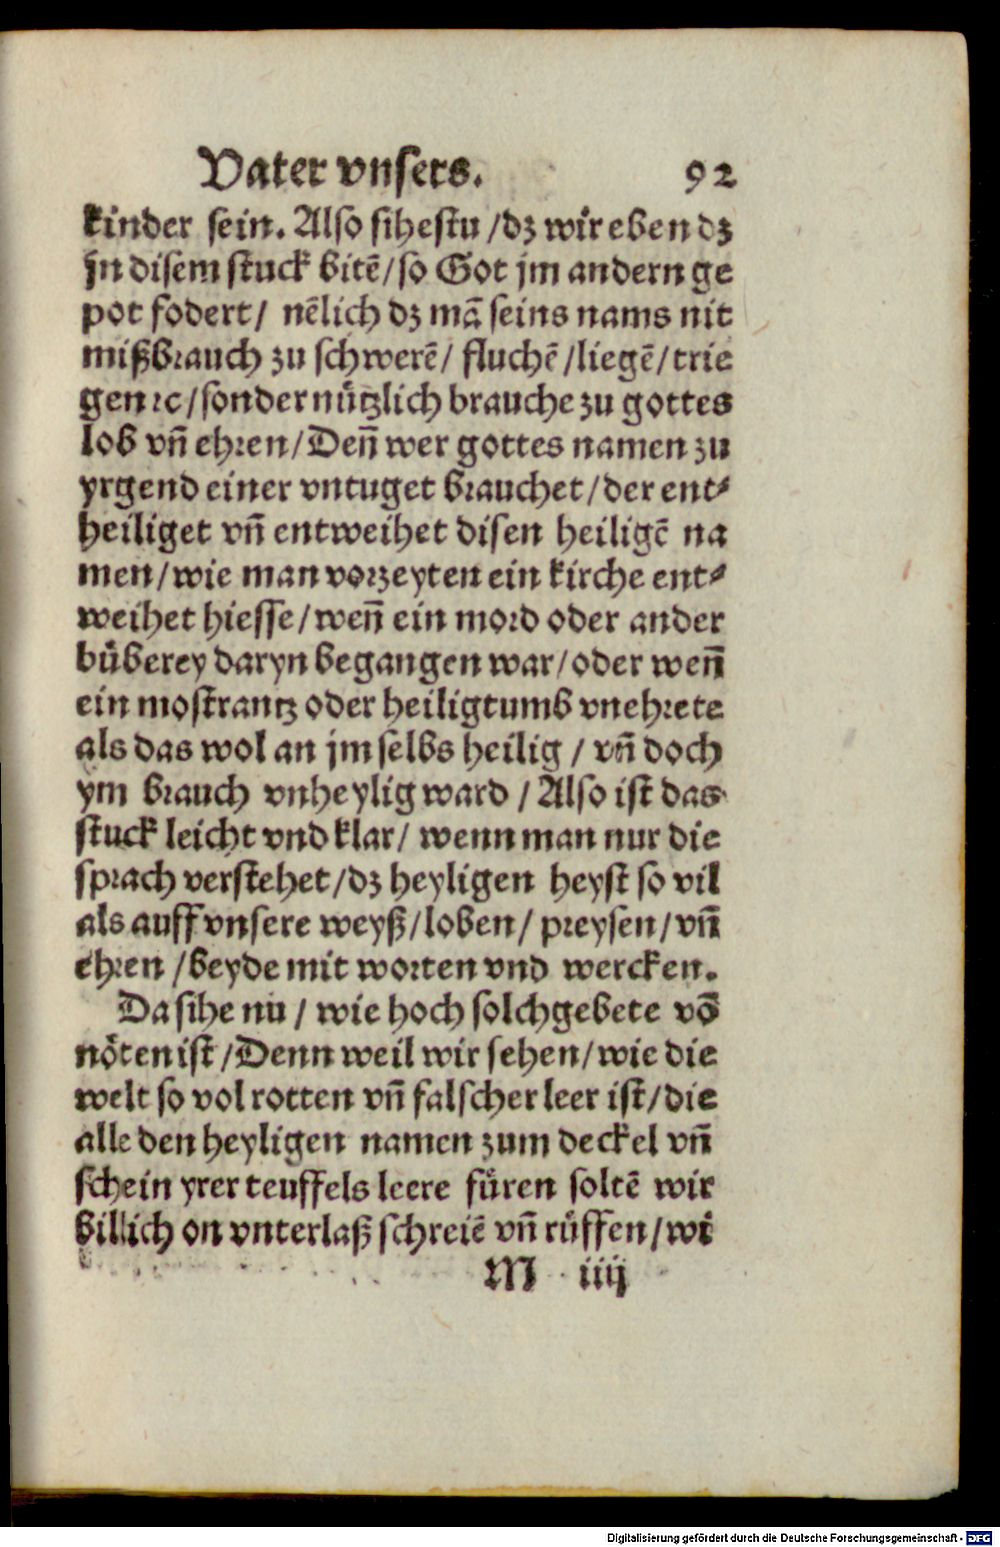 Vater vnsers. 92
kinder sein. Also sihestu /dz wir eben dz
jn disem stuck bitē/so Got jm andern ge
pot fodert/ nēlich dz mā seins nams nit
mißbrauch zu schwerē/ fluchē /liegē/trie
gen ꝛc/sonder nützlich brauche zu gottes
lob vñ ehren/Deñ wer gottes namen zu
yrgend einer vntuget brauchet/der ent⸗
heiliget vñ entweihet disen heiligē na
men/wie man vorzeyten ein kirche ent⸗
weihet hiesse/weñ ein mord oder ander
büberey daryn begangen war/oder weñ
ein mostrantz oder heiligtumb vnehrete
als das wol an jm selbs heilig / vñ doch
ym brauch vnheylig ward / Also ist das
stuck leicht vnd klar/ wenn man nur die
sprach verstehet/dz heyligen heyst so vil
als auff vnsere weyß/loben/ preysen/vñ
ehren /beyde mit worten vnd wercken.
Da sihe nu / wie hoch solch gebete vō
nöten ist /Denn weil wir sehen/wie die
welt so vol rotten vñ falscher leer ist/die
alle den heyligen namen zum deckel vñ
schein yrer teuffels leere füren soltē wir
billich on vnterlaß schreiē vñ rüffen/wi
M iiij
Digitalisierung gefördert durch die Deutsche Forschungsgemeinschaft - DFG